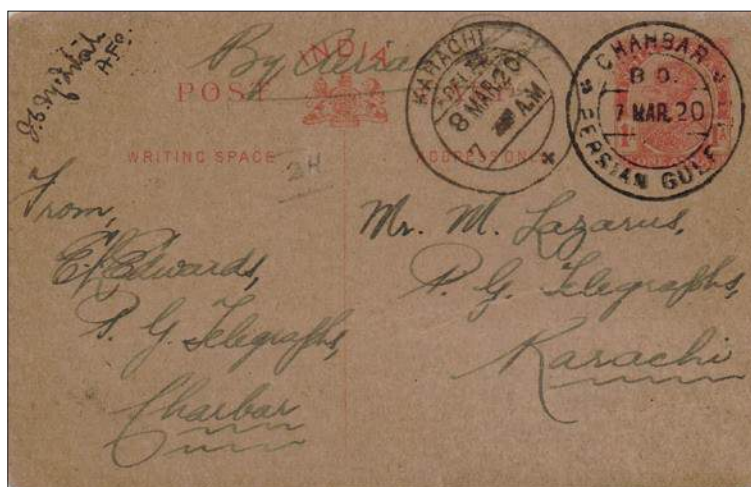 By Aerial
INDIA
POST CARD
WRITING SPACE
ADDRESS ONLY
KARACHI
DEL.
8 MAR.20
7 A.M
CHAHBAR
B O.
7 MAR.20
PERSIAN GULF
2H
From,
E. Edwards,
P. G. Telegraphs,
Charbar
Mr. M. Lazarus,
P. G. Telegraphs,
Karachi